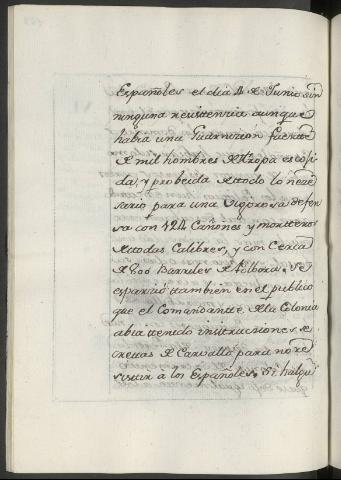 Españoles el dia 4 de Junio sin
ninguna resistenzia aunque
habia una Guarnizion fuerte
de mil hombres de tropa escoji-
da, y probeida de todo lo neze-
sario para una vigorosa defen
sa con 124 Cañones y morteros
de todos Calibres, y con Cerca
de 700 Barriles de Polbora. Se
esparzió tambien en el publico
que el Comandante de la Colonia
abia tenido instruciones se-
cretas de Carvallo para no re
sistir a los Españoles. Si halgu